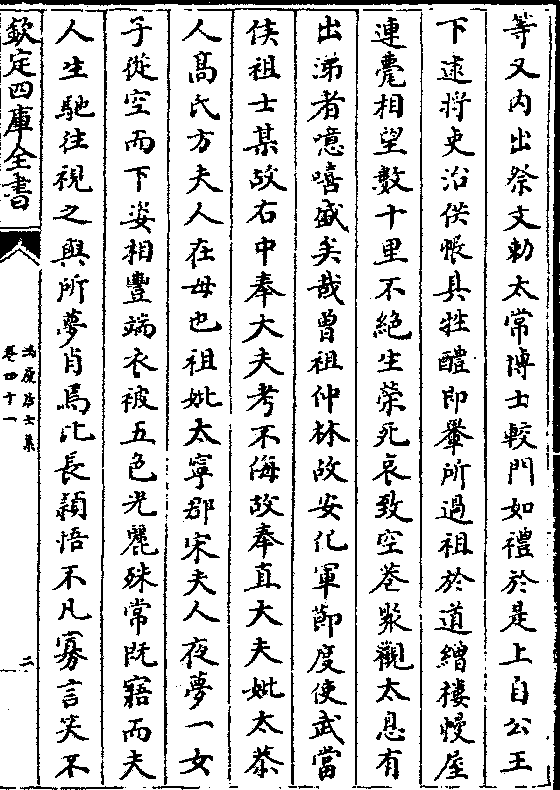 等又内出祭文勅太常博士較門如禮於是上自公王
下逮將吏治供帳具牲醴即轝所過祖於道繒樓幔屋
連甍相望數十里不絶生榮死哀致空巷聚觀太息有
出涕者噫嘻盛矣哉曾祖仲林故安化軍節度使武當
侯祖士某故右中奉大夫考不侮故奉直大夫妣太恭
人髙氏方夫人在母也祖妣太寧郡宋夫人夜夢一女
子從空而下姿相豐端衣被五色光麗殊常既寤而夫
人生馳往視之與所夢肖焉比長穎悟不凡寡言笑不
欽定四庫全書
鴻慶居士集
卷四十一
二